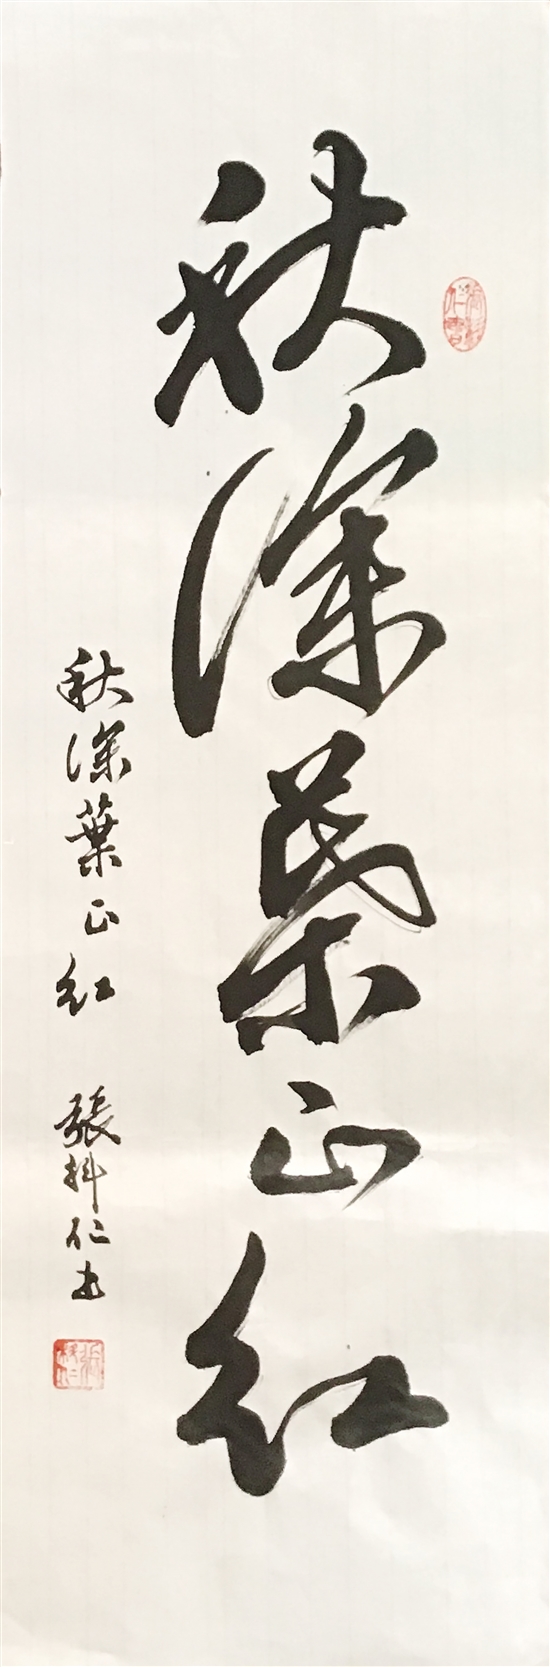 秋深葉正紅
秋深葉正紅 張科仁书